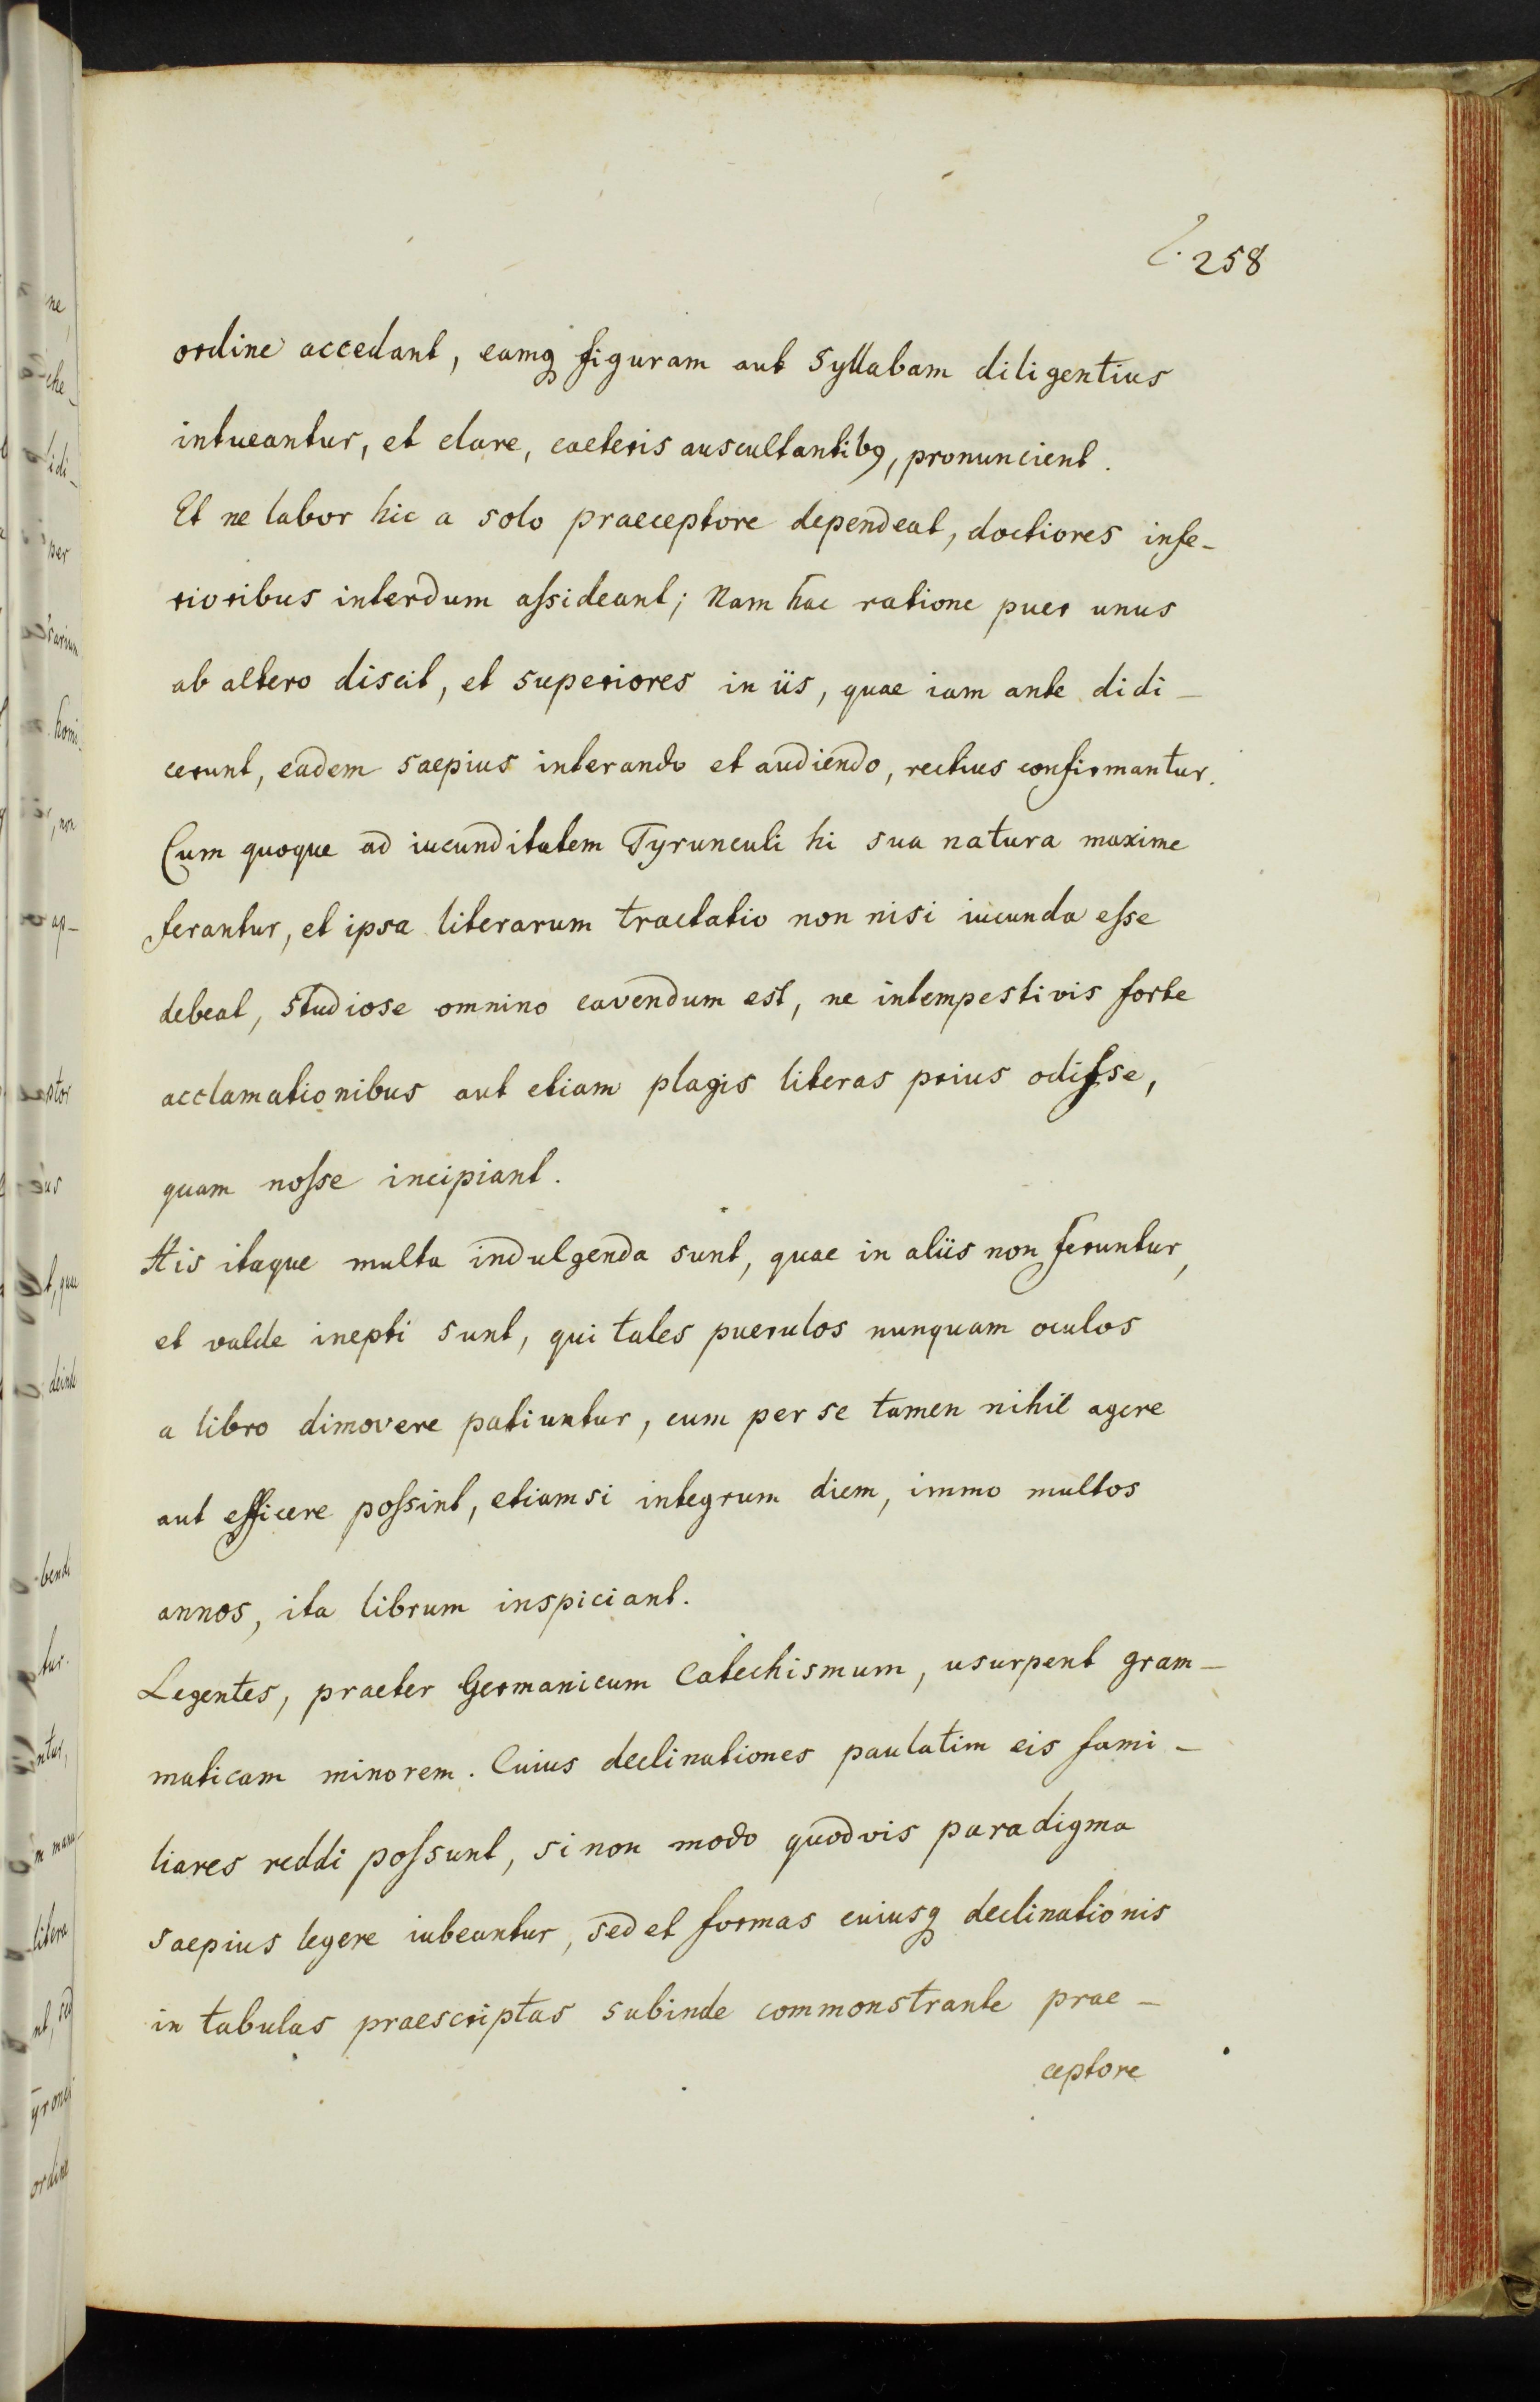 258
ordine accedant, eamq́ figuram aut Syllabam diligentius
intueantur, et clare, caeteris auscultantibꝯ, pronuncient.
Et ne labor hic a solo praeceptore dependeat, doctiores infe-
rioribus interdum aſsideant; Nam hac ratione puer unus
ab altero discit, et superiores in iis, quae iam ante didi-
cerunt, eadem saepius interando et audiendo, rectius confirmantur.
Cum quoque ad iucunditatem Tyrunculi hi sua natura maxime
ferantur, et ipsa literarum tractatio non nisi iucunda eſse
debeat, studiose omnino cavendum est, ne intempestivis forte
acclamationibus aut etiam plagis literas prius odiſse,
quam noſse incipiant.
His itaque multa indulgenda sunt, quae in aliis non feruntur,
et valde inepti sunt, qui tales puerulos nunquam oculos
a libro dimovere patiuntur, cum per se tamen nihil agere
aut efficere poſsint, etiamsi integrum diem, immo multos
annos, ita librum inspiciant.
Legentes, praeter Germanicum Catechismum, usurpent gram-
maticam minorem. Cuius declinationes paulatim eis fami-
liares reddi poſsunt, si non modo quodvis paradigma
saepius legere iubeantur, sed et formas cuiusq́ declinationis
in tabulas praescriptas subinde commonstrante prae-
ceptore